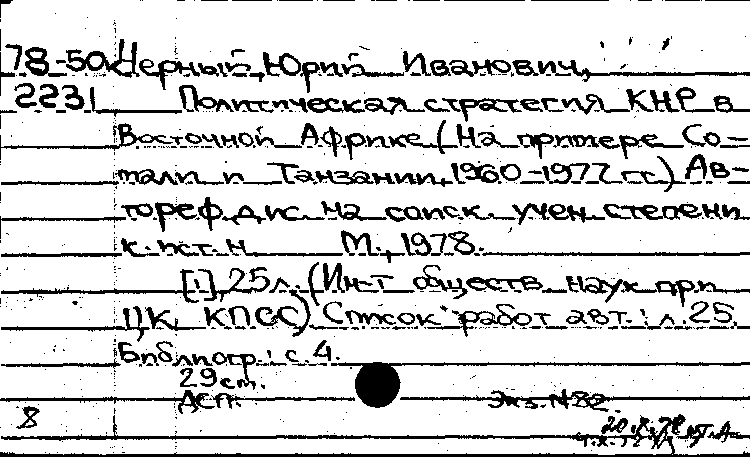 78-50к Черный, Юрий Иванович,
2231 Политическая стратегия КНР в
Восточной Африке (На примере Со-
мали и Танзании, 1960-1977 гг.) Ав-
тореф. дис. на соиск. учен. степени
к. ист. н. М., 1978.
[1], 25 л. (Ин-т обществ. наук при
ЦК КПСС) Список работ авт.: л. 25.
Библиогр.: с. 4.
29 см.
ДСП. Экз. №82.
8
20.X.78